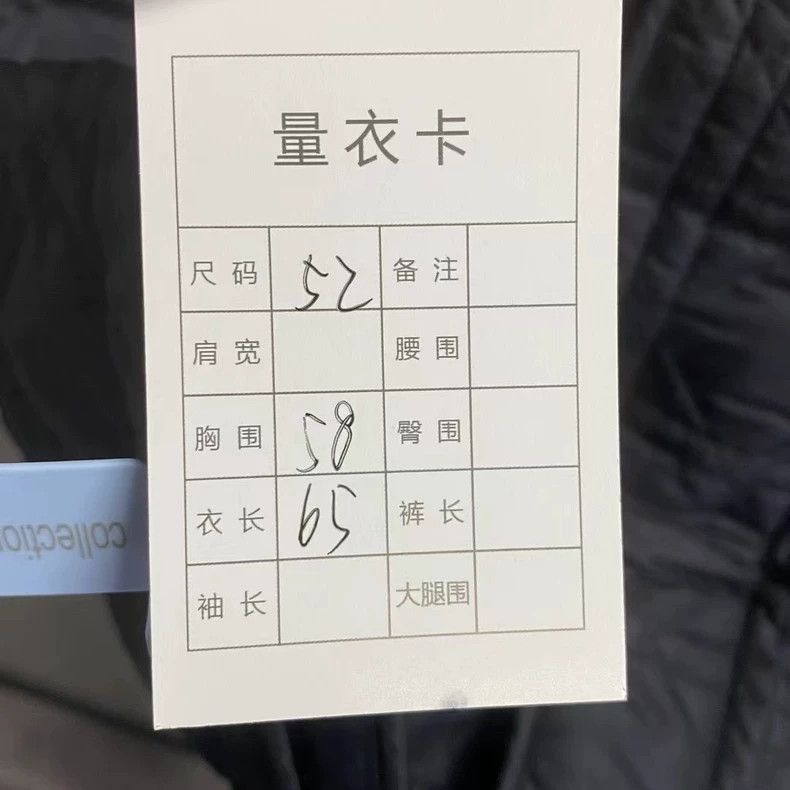 量衣卡
尺码 52 备注
肩宽 腰围
胸围 58 臀围
衣长 65 裤长
袖长 大腿围
collection